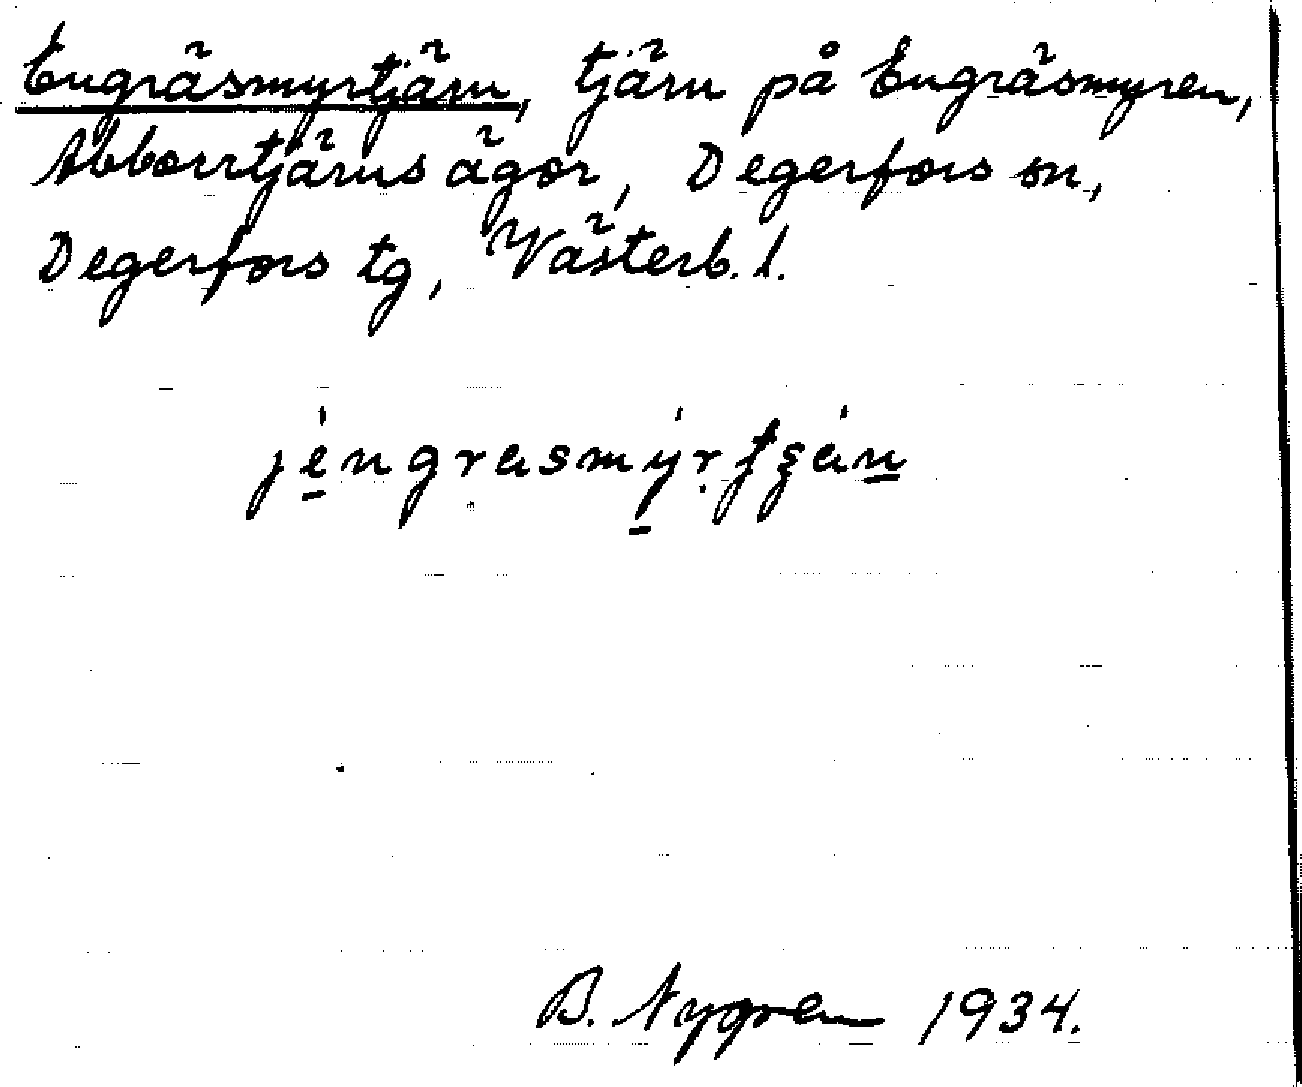 Engräsmyrtjärn, tjärn på Engräsmyren,
Abborrtjärns ägor, Degerfors sn,
Degerfors tg, Västerb. l.
B. Nygren 1934.